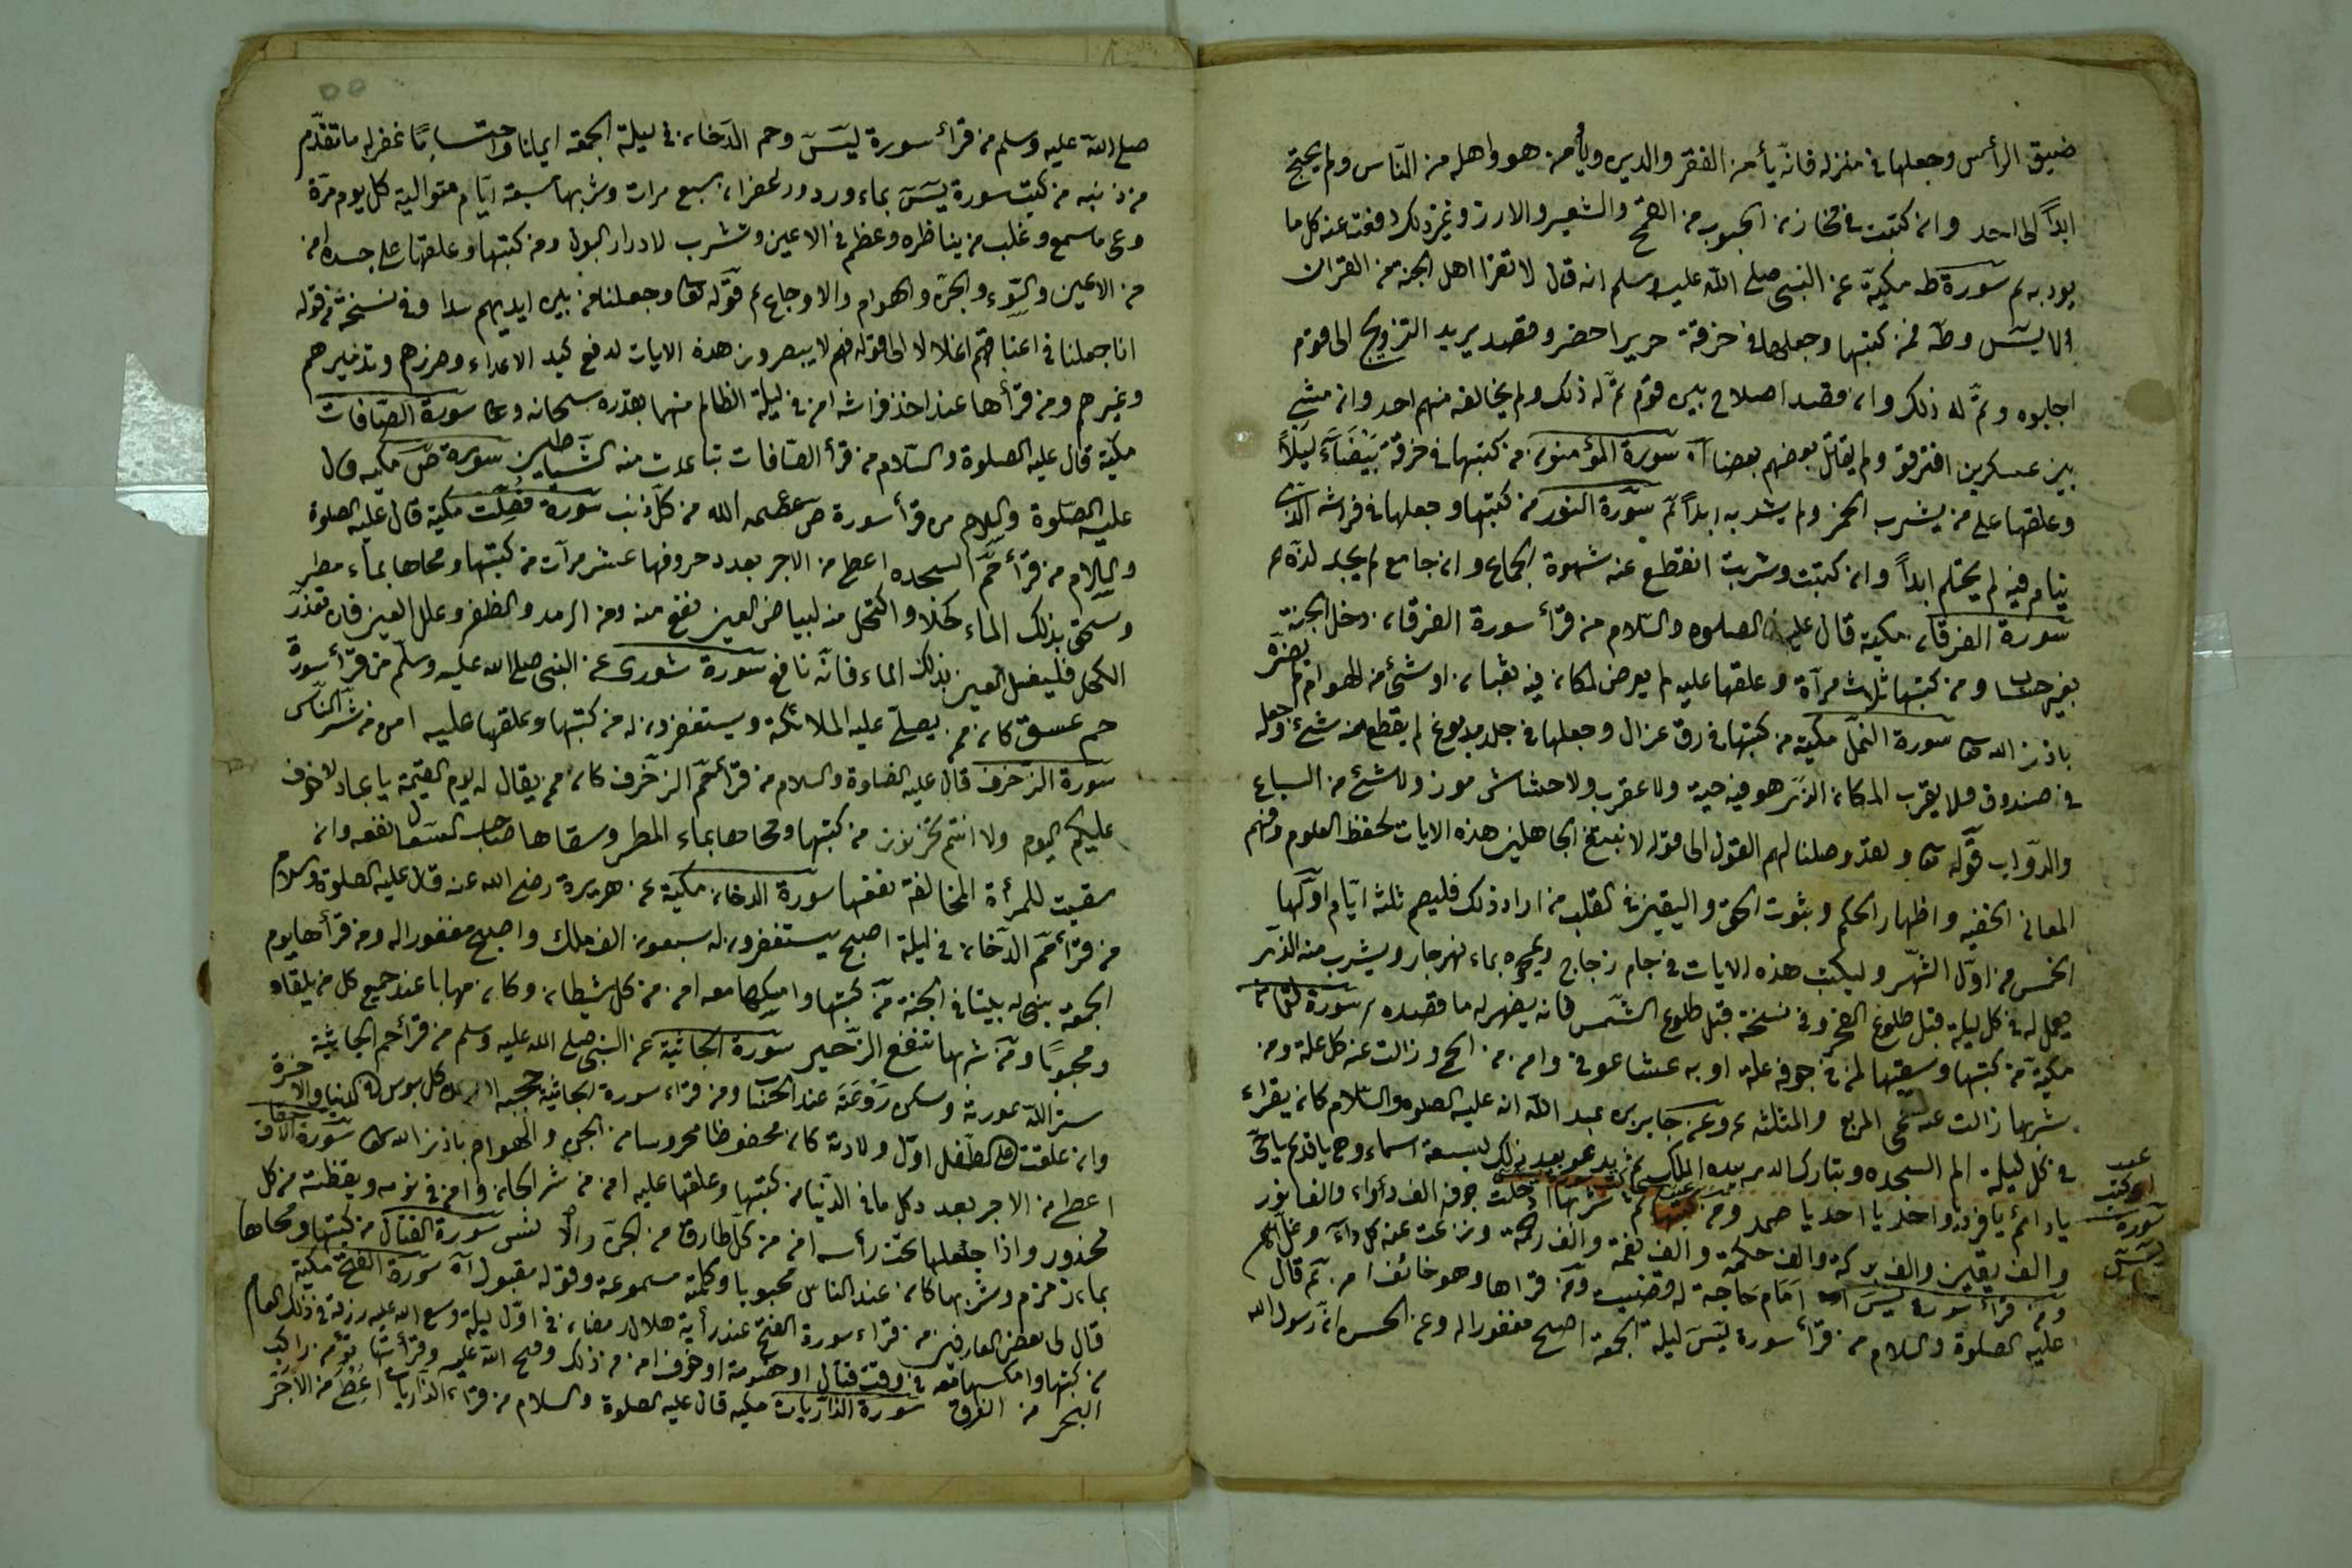 ضيق الرأس وجعلها فى منزله فانّه يأمن الفقر والدين ويأمن هو واهله من النّاس ولم يحتج
ابداً الى احد وان كتبت فى مخازن الحبوب من القمح والشعير والارز وغير ذلك دفعت عنه كل ما
يوذيه سورة طه مكية عن النبى صلى الله عليه وسلم انه قال لا تقرا اهل الجنة من القران
الا يس وطه فمن كتبها وجعلها فى خرقة حرير اخضر وقصد يريد التزويج الى قوم
اجابوه وتمّ له ذلك وان قصد اصلاح بين قوم تمّ له ذلك ولم يخالفه منهم احد وان مشى
بين عسكرين افترقو ولم يقاتل بعضهم بعضا سورة المؤمنون من كتبها فى خرقة بيضآء ليلاً
وعلقها على من يشرب الخمر ولم يشربه ابداً سورة النور من كتبها وجعلها فى فراشه الذى
ينام فيه لم يحتلم ابداً وان كتبت وشربت انقطع عنه شهوة الجماع وان جامع لم يجد لذة
سورة الفرقان مكية قال عليه الصلوة والسّلام من قرأ سورة الفرقان دخل الجنة
بغير حساب ومن كتبها ثلاث مرآة وعلقها عليه لم يعرض لمكان فيه ثعبان او شئ من الهوام لم يضرّه
باذن الله تعا سورة النمل مكية من كتبها فى رق غزال وجعلها فى جلد مدبوغ لم يقطع منه شئ وجعله
فى صندوق فلا يقرب المكان الذى هو فيه حية ولا عقرب ولا حشاش موذ ولا شئ من السباع
والدوّاب قوله تعا ولقد وصلنا لهم القول الى قوله لا نبتغى الجاهلين هذه الايات لحفظ العلوم وفهم
المعانى الخفيه واظهار الحكم وبثوت الحق واليقين فى القلب من اراد ذلك فليصم ثلثه ايّام اوّلها
الخمس من اوّل الشّهر وليكتب هذه الايات فى جام زجاج ويمحوه بماء نهر جار ويشرب منه الذى
جعل له فى كل ليلة قبل طلوع الفجر وفى نسخة قبل طلوع الشّمس فانه يضهر له ما قصده سورة لقمان
مكية من كتبها وسقيها لمن فى جوفه علة او به عشا عوفى وامن من الحمى وزالت عنه كل علة ومن
شربها زالت عنه حمى المربع والمثلثه وعن جابر بن عبد الله انه عليه الصلوة والسّلام كان يقراء
فى كل ليلة الم السجده وتبارك الذى بيده الملك ثم يدعو بعد ذلك بسبعة اسماء وهى يا قديم يا حىّ
يا دائم يا فرد يا واحد يا احد يا صمد ومن كتبها ثم شربها ادخلت جوفه الف دواء والف نور
والف يقين والف بركة والف حكمة والف نعمة والف رحمة ونزعت عنه كل داء وغل
ومن قرأ سورة يس امام حاجة له قضيت ومن قراها وهو خائف امن ثم قال
عليه الصلوة والسلام من قرأ سورة يس ليلة الجمعة اصبح مغفورا له وعن الحسن انّ رسول الله
سورة
يس
صلى الله عليه وسلم من قرأ سورة يس وحم الدّخان فى ليلة الجمعة ايمانا واحتسابًا غفر له ما تقدّم
من ذنبه من كتب سورة يس بماء ورد وزعفران سبع مرات وشربها سبعة ايّام متوالية كل يوم مرّة
وعى ما سمع وغلب من يناظره وعظم فى الاعين وتشرب لادرار البول ومن كتبها وعلقها على جسده امن
من الاعين والسّوء والجن والهوام والاوجاع قوله تعا وجعلنا من بين ايديهم سدا وفى نسخة من قوله
انا جعلنا فى اعناقهم اغلالا الى قوله فهم لا يبصرون هذه الايات لدفع كيد الاعداء وضررهم وتدميرهم
وغيرهم ومن قرأها عند اخذ فراشه امن فى ليلة الظالم منهما بقدره سبحانه وتعا سورة الصّافات
مكية قال عليه الصلوة والسّلام من قرأ الصّافات تباعدت منه الشّياطين سورة ص مكيه قال
عليه الصّلوة والسلام من قرأ سورة ص عصمه الله من كلّ ذنب سورة فصّلت مكية قال عليه الصلوة
والسّلام من قرأ حم السجده اعطى من الاجر بعدد حروفها عشر مرآت من كتبها ومحاها بماء مطر
وسحق بذلك الماء كحلا واكتحل منه لبياض العين نفع منه ومن الرمد والظفر وعلل العين فان تعذّر
الكحل فليغسل العين بذلك الماء فانّه نافع سورة شورى عن النبى صلى الله عليه وسلّم من قرأ سورة
حم عسق كان ممن يصلّى عليه الملائكة ويستغفرون له من كتبها وعلقها عليه امن من شرّ النّاس
سورة الزخرف قال عليه الصلوة والسلام من قرأ حم الزخرف كان ممن يقال له يوم القيمة يا عباد لا خوف
عليكم اليوم ولا انتم تحزنون من كتبها ومحاها بماء المطر وسقاها صاحب السعال نفعه وان
سقيت للمرأة المخالفة نفعها سورة الدخان مكية عن هريرة رضى الله عنه قال عليه الصلوة والسلام
من قرأ حم الدّخان فى ليلة اصبح يستغفرون له سبعون الف ملك واصبح مغفورا له ومن قرأها يوم
الجمعة بنى له بيتا فى الجنة من كتبها وامسكها معه امن من كل شيطان وكان مهابا عند جميع كل من يلقاه
ومحبوبًا ومن شربها تنفع الزّحير سورة الجاثية عن النبى صلى الله عليه وسلم من قرأ حم الجاثية
ستر الله عورته وسكن روعته عند الحساب ومن قراء سورة الجاثية
وان علقت على الطفل اوّل ولادته كان محفوظا محروسا من الجن والهوام باذن الله تعا سورة الاحقاف
اعطى من الاجر بعدد كل ما فى الدّنيا من كتبها وعلقها عليه امن من شر الجان وامن فى نومه ويقظته من كل
محذور واذا جعلها تحت رأسه امن من كلّ طارق من الجن والانس سورة القتال من كتبها ومحاها
بماء زمزم وشربها كان عند الناس محبوبا وكلمته مسموعة وقوله مقبول سورة الفتح مكية
قال لى بعض العارفين من قراء سورة الفتح عند رأية هلال رمضان فى اوّل ليلة وسع الله عليه رزقه فى ذلك العام
من كتبها وامسكها معه فى وقت قتال او خصومة او خوف امن من ذلك وفتح الله عليه وقرأتها تؤمن راكب
البحر من الغرق سورة الذاريات مكيه قال عليه الصلوة والسلام من قراء الذاريات اعطى من الاجر